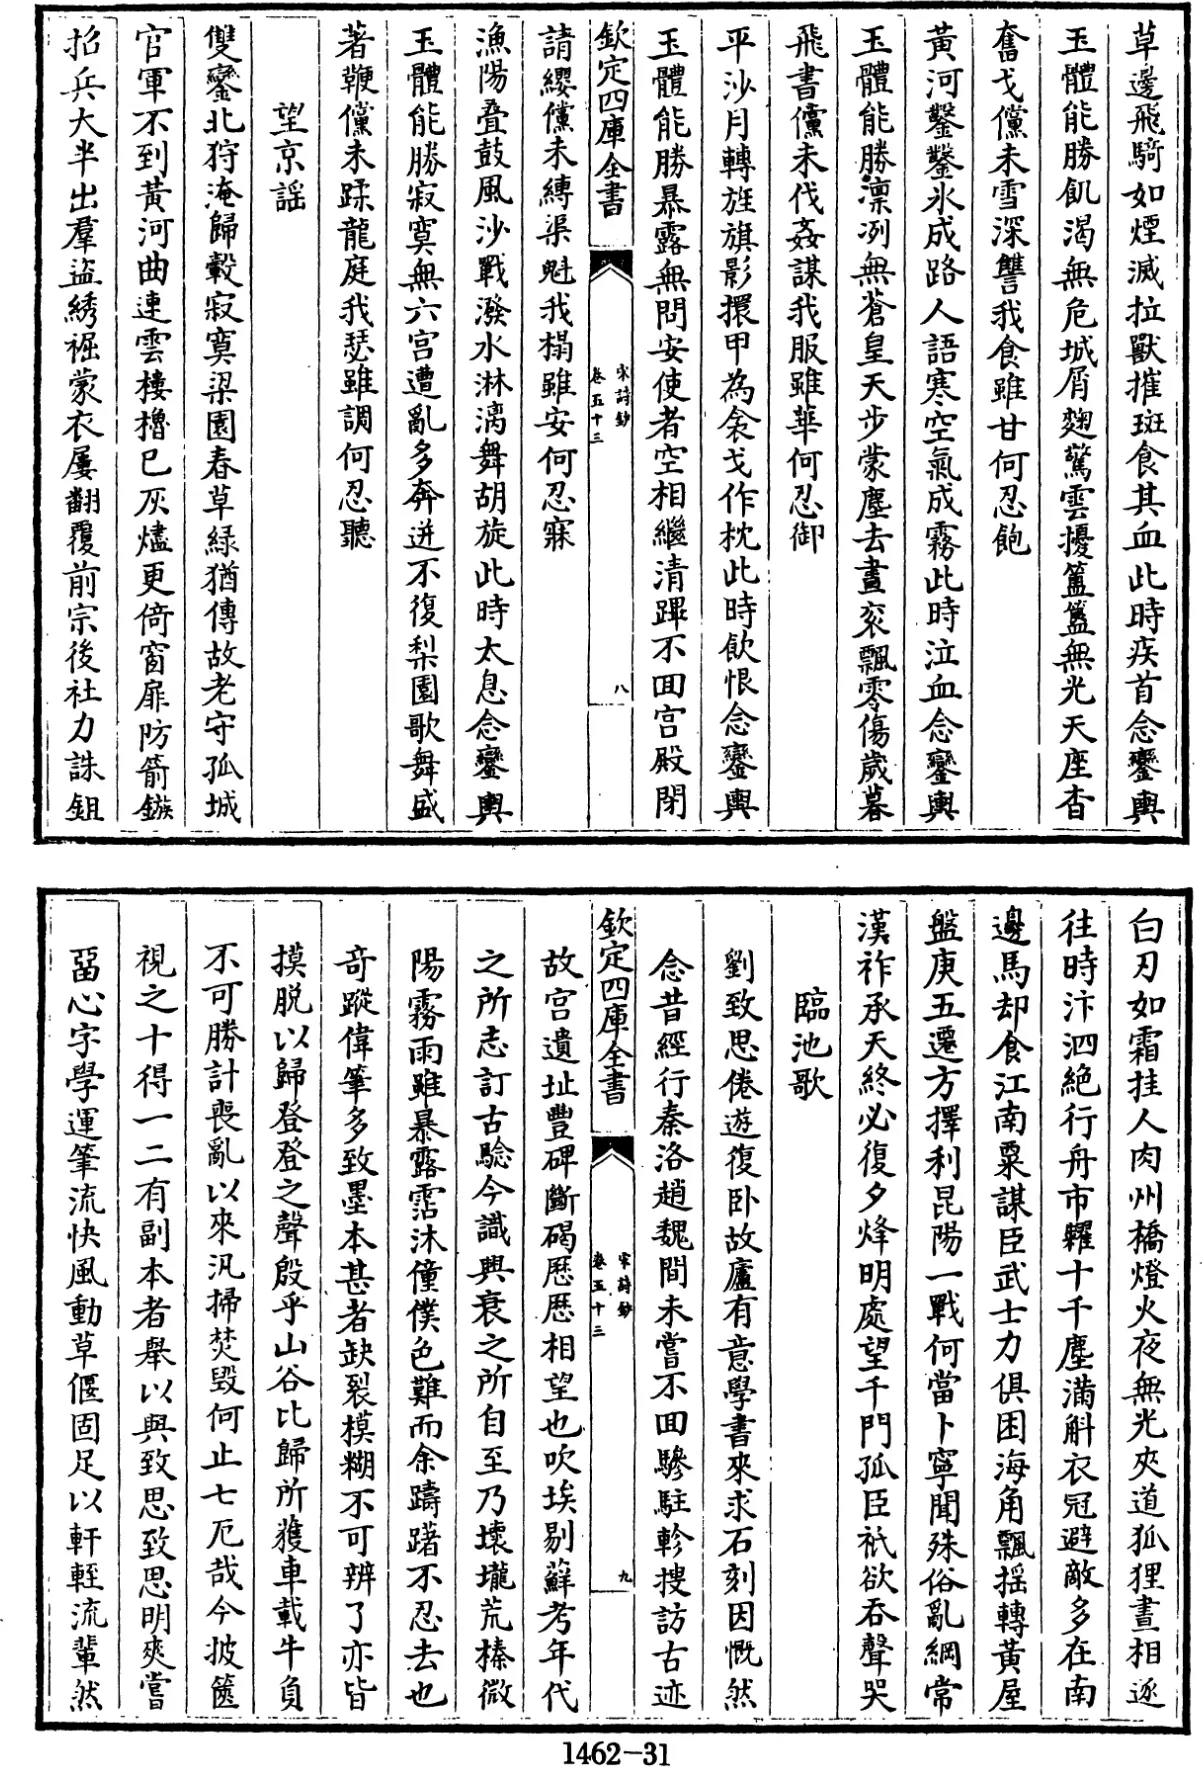 草邊飛騎如煙滅拉獸摧斑食其血此時疾首念鑾輿
玉體能勝飢渴無危城屑麴驚雲擾簠簋無光天座杳
奮戈儻未雪深讐我食雖甘何忍飽
黃河鑿鑿氷成路人語寒空氣成霧此時泣血念鑾輿
玉體能勝凛冽無蒼皇天步蒙塵去晝衮飄零傷歲暮
飛書儻未伐姦謀我服雖華何忍御
平沙月轉旌旗影擐甲為衾戈作枕此時飲恨念鑾輿
玉體能勝暴露無問安使者空相繼清蹕不囬宮殿閉
欽定四庫全書
宋詩鈔
卷五十三
八
請纓儻未縛渠魁我榻雖安何忍寐
漁陽疊鼓風沙戰潑水淋漓舞胡旋此時太息念鑾輿
玉體能勝寂寞無六宫遭亂多奔迸不復梨園歌舞盛
著鞭儻未蹂龍庭我瑟雖調何忍聽
望京謡
雙鑾北狩淹歸轂寂寞梁園春草緑猶傳故老守孤城
官軍不到黃河曲連雲樓櫓已灰燼更倚窗扉防箭鏃
招兵大半出羣盜綉裾蒙衣屢翻覆前宗後社力誅鉏
白刃如霜挂人肉州橋燈火夜無光夾道狐狸晝相逐
往時汴泗絶行舟市糶十千塵滿斛衣冠避敵多在南
邊馬却食江南粟謀臣武士力俱困海角飄揺轉黃屋
盤庚五遷方擇利昆陽一戰何當卜寧聞殊俗亂綱常
漢祚承天終必復夕烽明處望千門孤臣祇欲吞聲哭
臨池歌
劉致思倦遊復卧故廬有意學書來求石刻因慨然
念昔經行秦洛趙魏間未嘗不囬驂駐軫搜訪古迹
欽定四庫全書
宋詩鈔
卷五十三
九
故宫遺址豐碑斷碣歷歷相望也吹埃剔蘚考年代
之所志訂古驗今識興衰之所自至乃壞壠荒榛微
陽霧雨雖暴露霑沐僮僕色難而余躊躇不忍去也
奇蹤偉筆多致墨本甚者缺裂模糊不可辨了亦皆
摸脱以歸登登之聲殷乎山谷比歸所獲車載牛負
不可勝計喪亂以來汎掃焚毀何止七厄哉今披篋
視之十得一二有副本者舉以與致思致思明爽嘗
畱心字學運筆流快風動草偃固足以軒輊流輩然
1462-31